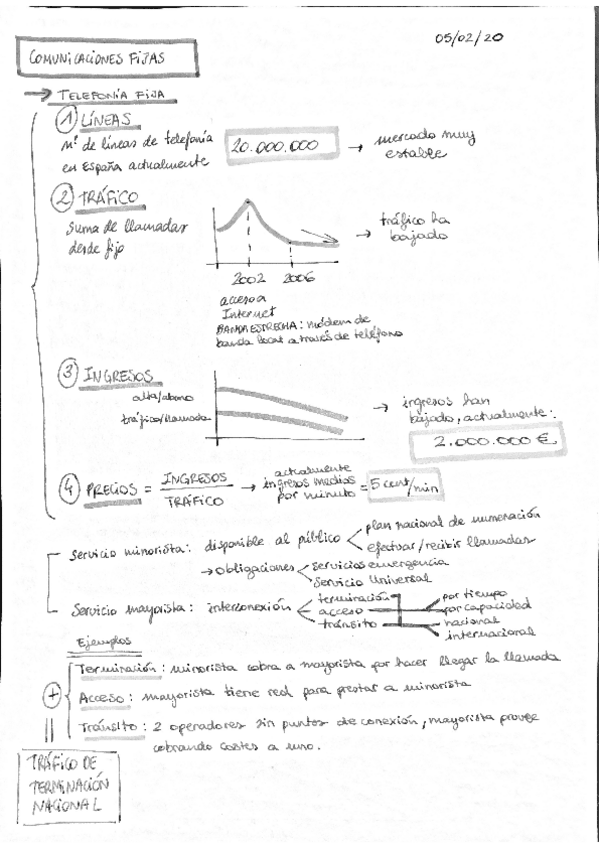 05/02/20
COMUNICACIONES FIJAS
→ TELEFONÍA FIJA
1 LÍNEAS
nº de líneas de telefonía
en España actualmente
20.000.000 → mercado muy
estable
2 TRÁFICO
suma de llamadas
desde fijo
→ tráfico ha
bajado
2002 2006
acceso a
Internet
BANDA ESTRECHA: módem de
banda local a través de teléfono
3 INGRESOS
alta/abono
tráfico/llamada
→ ingresos han
bajado, actualmente:
2.000.000 €
4 PRECIOS = INGRESOS
TRÁFICO
→ actualmente
ingresos medios
por minuto = 5 cent/min
Servicio minorista: disponible al público
plan nacional de numeración
efectuar/recibir llamadas
→ obligaciones
servicios emergencia
Servicio Universal
Servicio mayorista: interconexión
terminación
acceso
tránsito
por tiempo
por capacidad
nacional
internacional
Ejemplos
Terminación: minorista cobra a mayorista por hacer llegar la llamada
+ Acceso: mayorista tiene red para prestar a minorista
Tránsito: 2 operadores sin puntos de conexión, mayorista provee
cobrando costes a uno.
TRÁFICO DE
TERMINACIÓN
NACIONAL